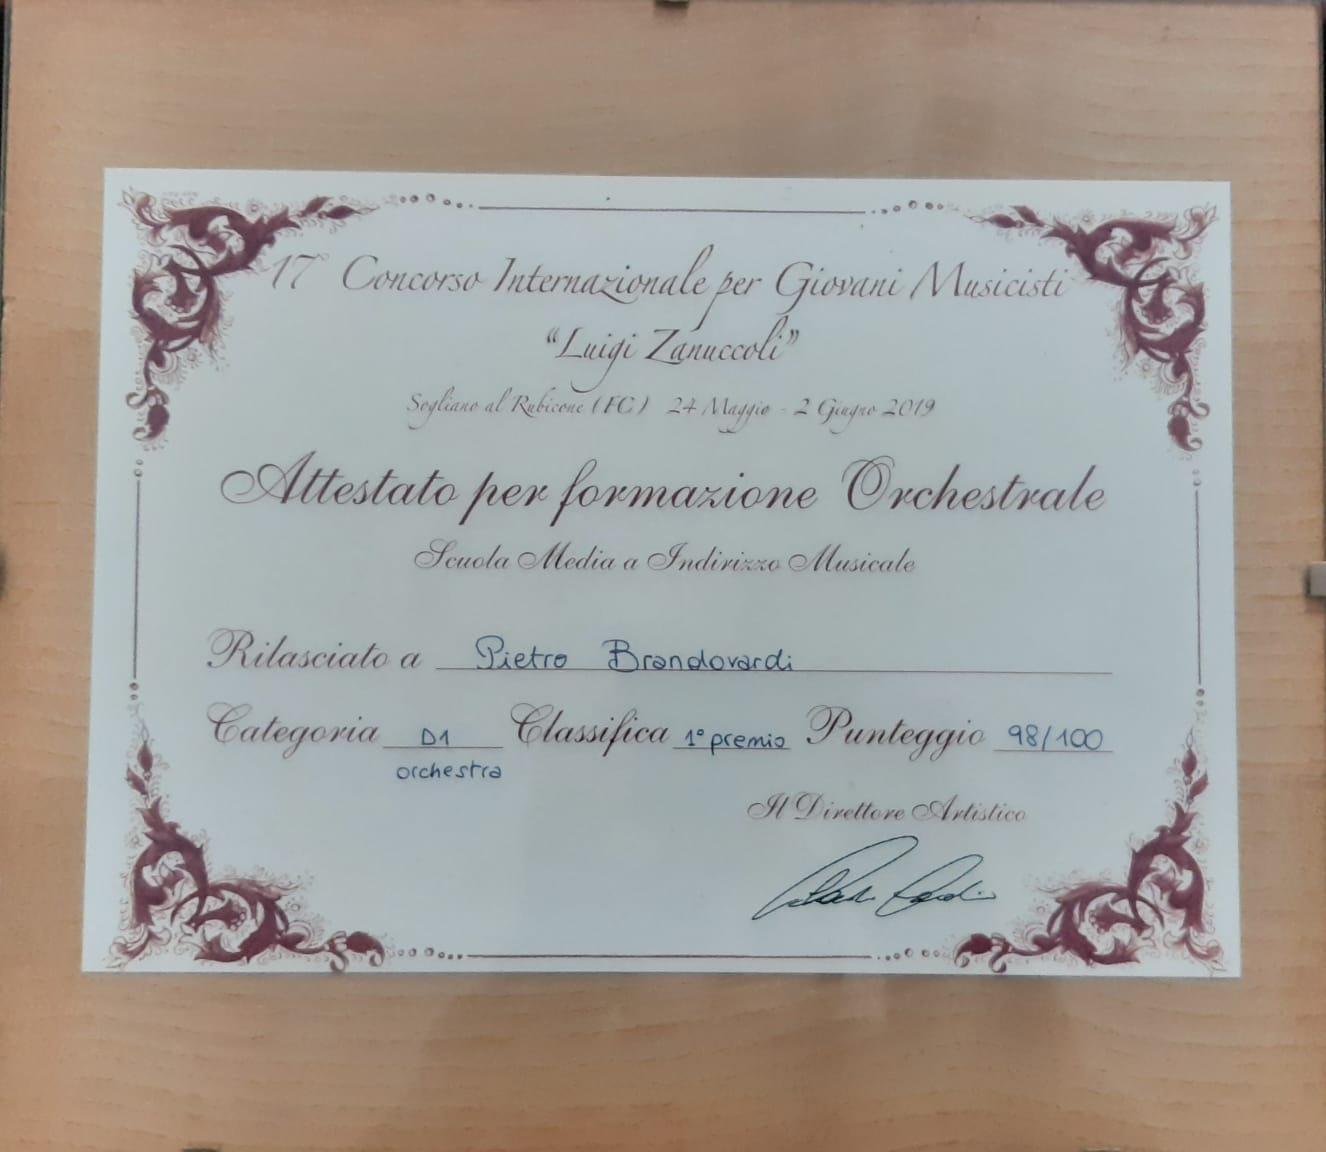 17° Concorso Internazionale per Giovani Musicisti
"Luigi Zanuccoli"
Sogliano al Rubicone (FC) 24 Maggio - 2 Giugno 2019
Attestato per formazione Orchestrale
Scuola Media a Indirizzo Musicale
Rilasciato a Pietro Brandovardi
Categoria D1 Classifica 1° premio Punteggio 98/100
orchestra
Il Direttore Artistico